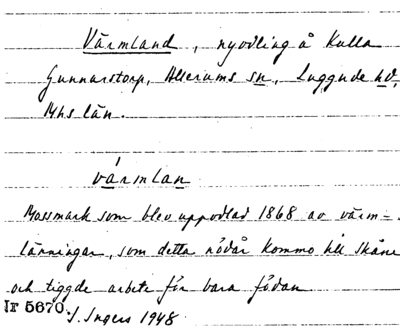 Värmland, nyodling å Kulla
Gunnarstorp, Allerums sn, Luggude hd,
Mhs län.
värmlan
Mossmark som blev uppodlad 1868 av värm-
länningar, som detta nödår kommo till Skåne
och tiggde arbete för bara födan
Nr 5670.
I. Ingers 1948